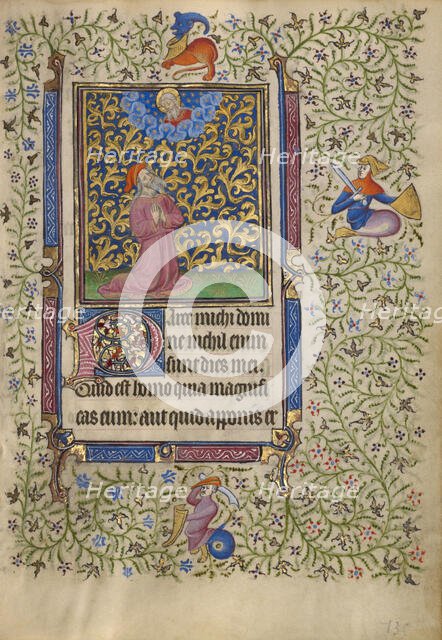 Heritage Heritage
Heritage Heritage Heritage
Parce michi domi
ne nichil enim
sunt dies mei
Quid est homo quia magnifi
cas eum: aut quid apponis er
Heritage Heritage